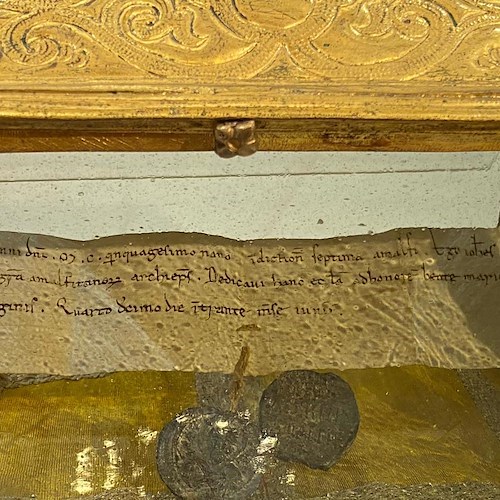 nni dnī . M . C . quinquagesimo nono indictione septima amalfi Ego ioh̄es
gr̄a amalfitanorū archiep̄s . Dedicavi hanc eccl̄a ad honorē beate marie
ginis . Quarto decimo die intrante m̄se iunii .